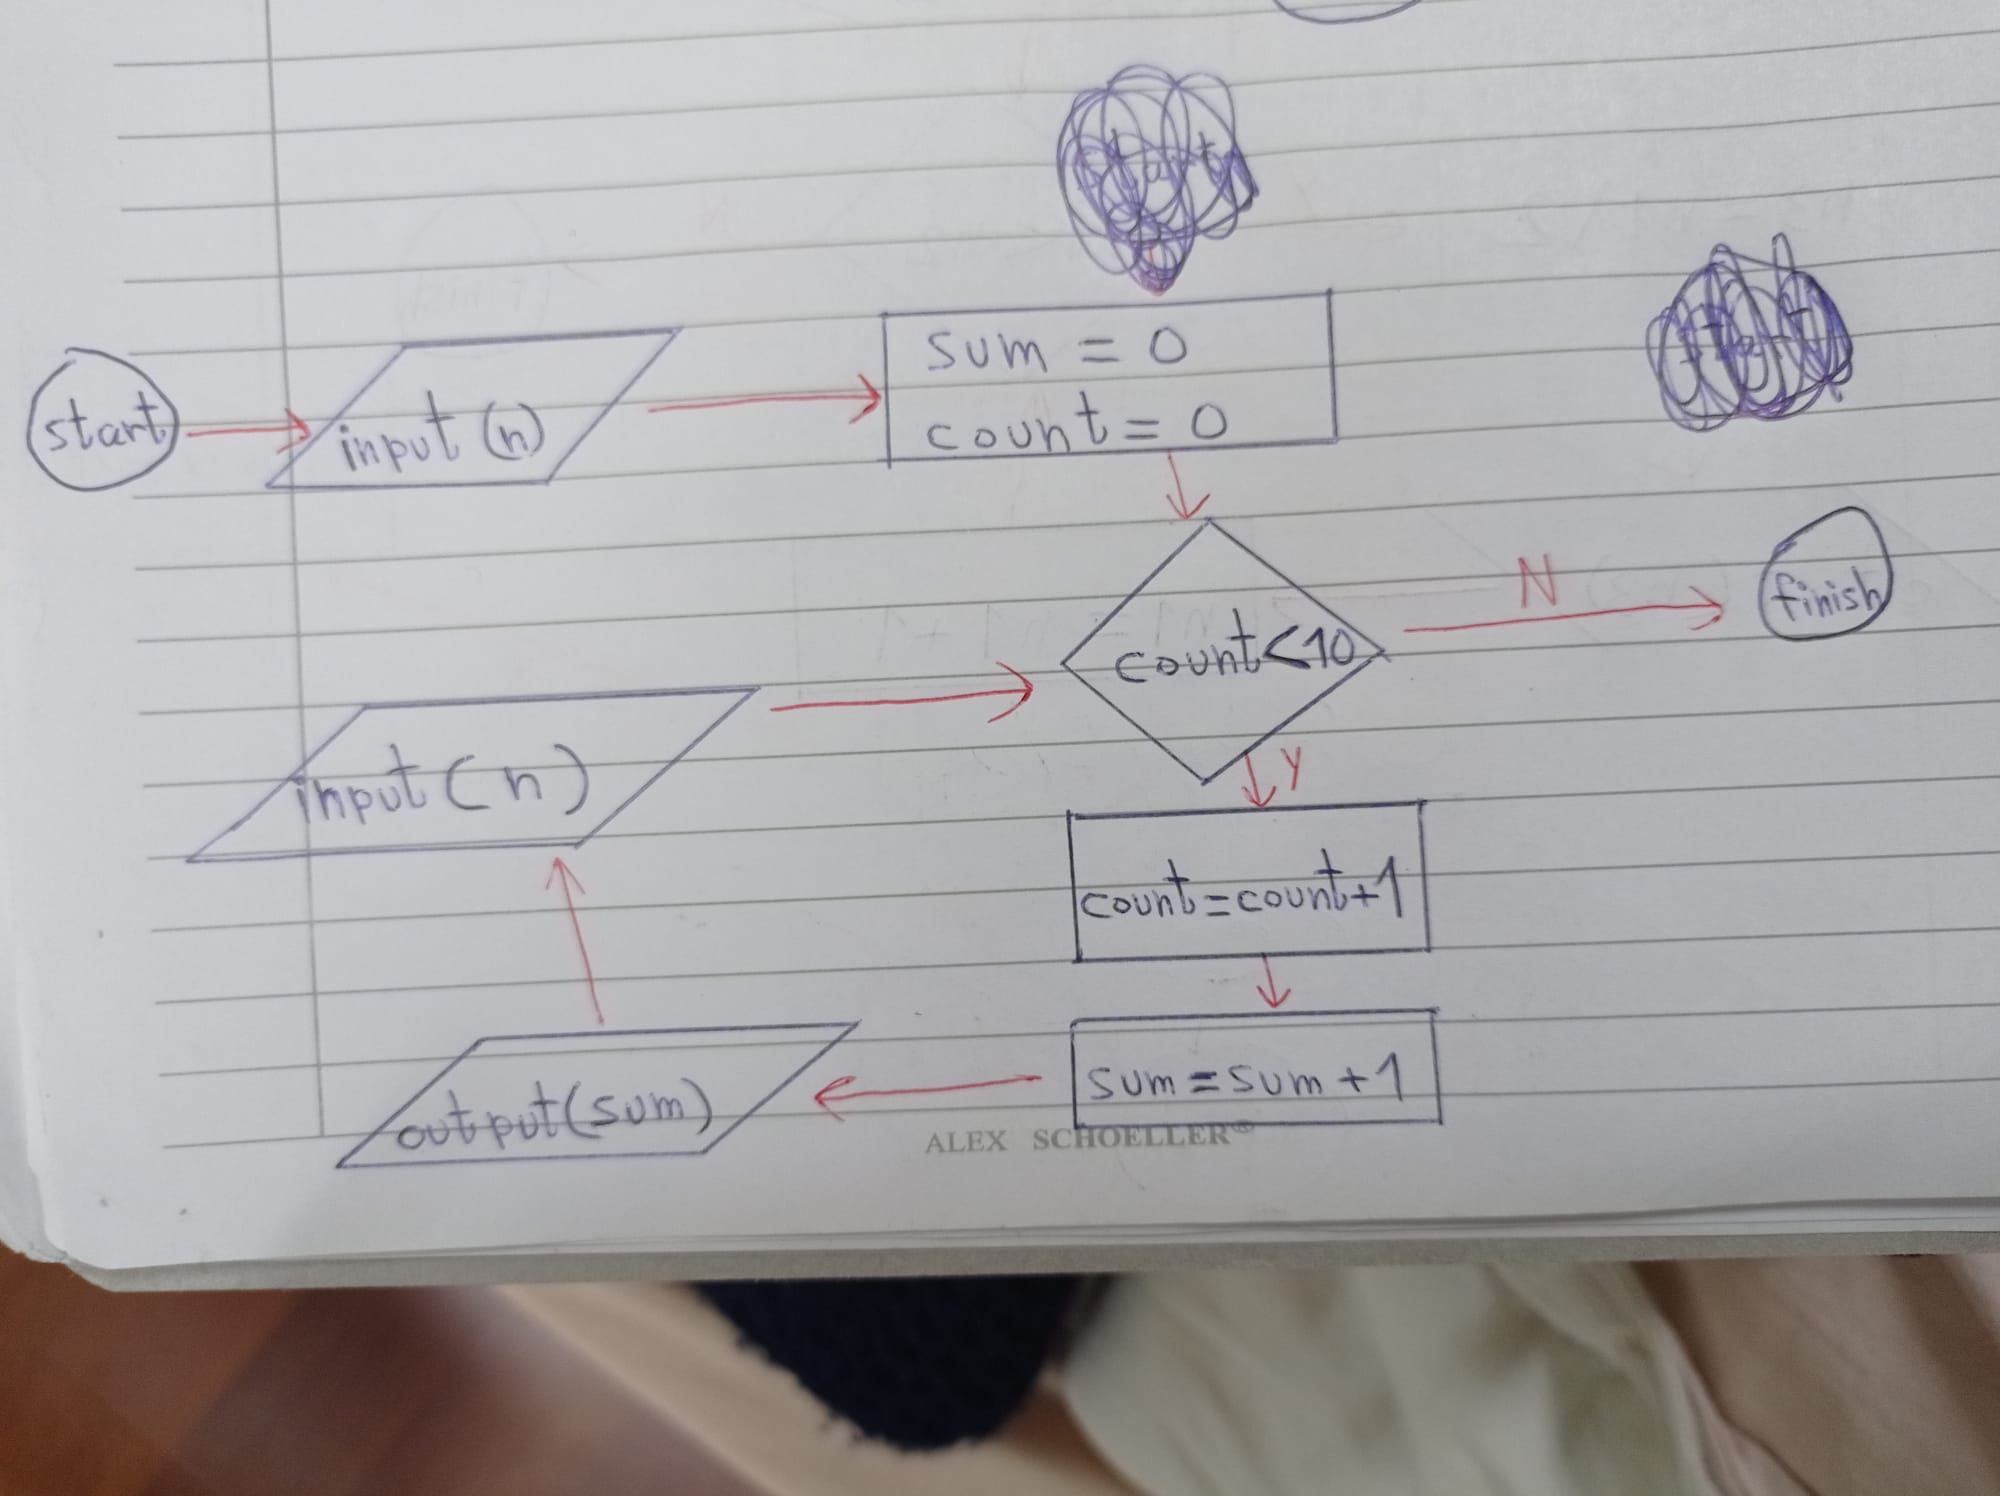 start
input (n)
sum = 0
count = 0
count<10
N
finish
Y
input (n)
count=count+1
sum=sum+1
output(sum)
ALEX SCHOELLER®